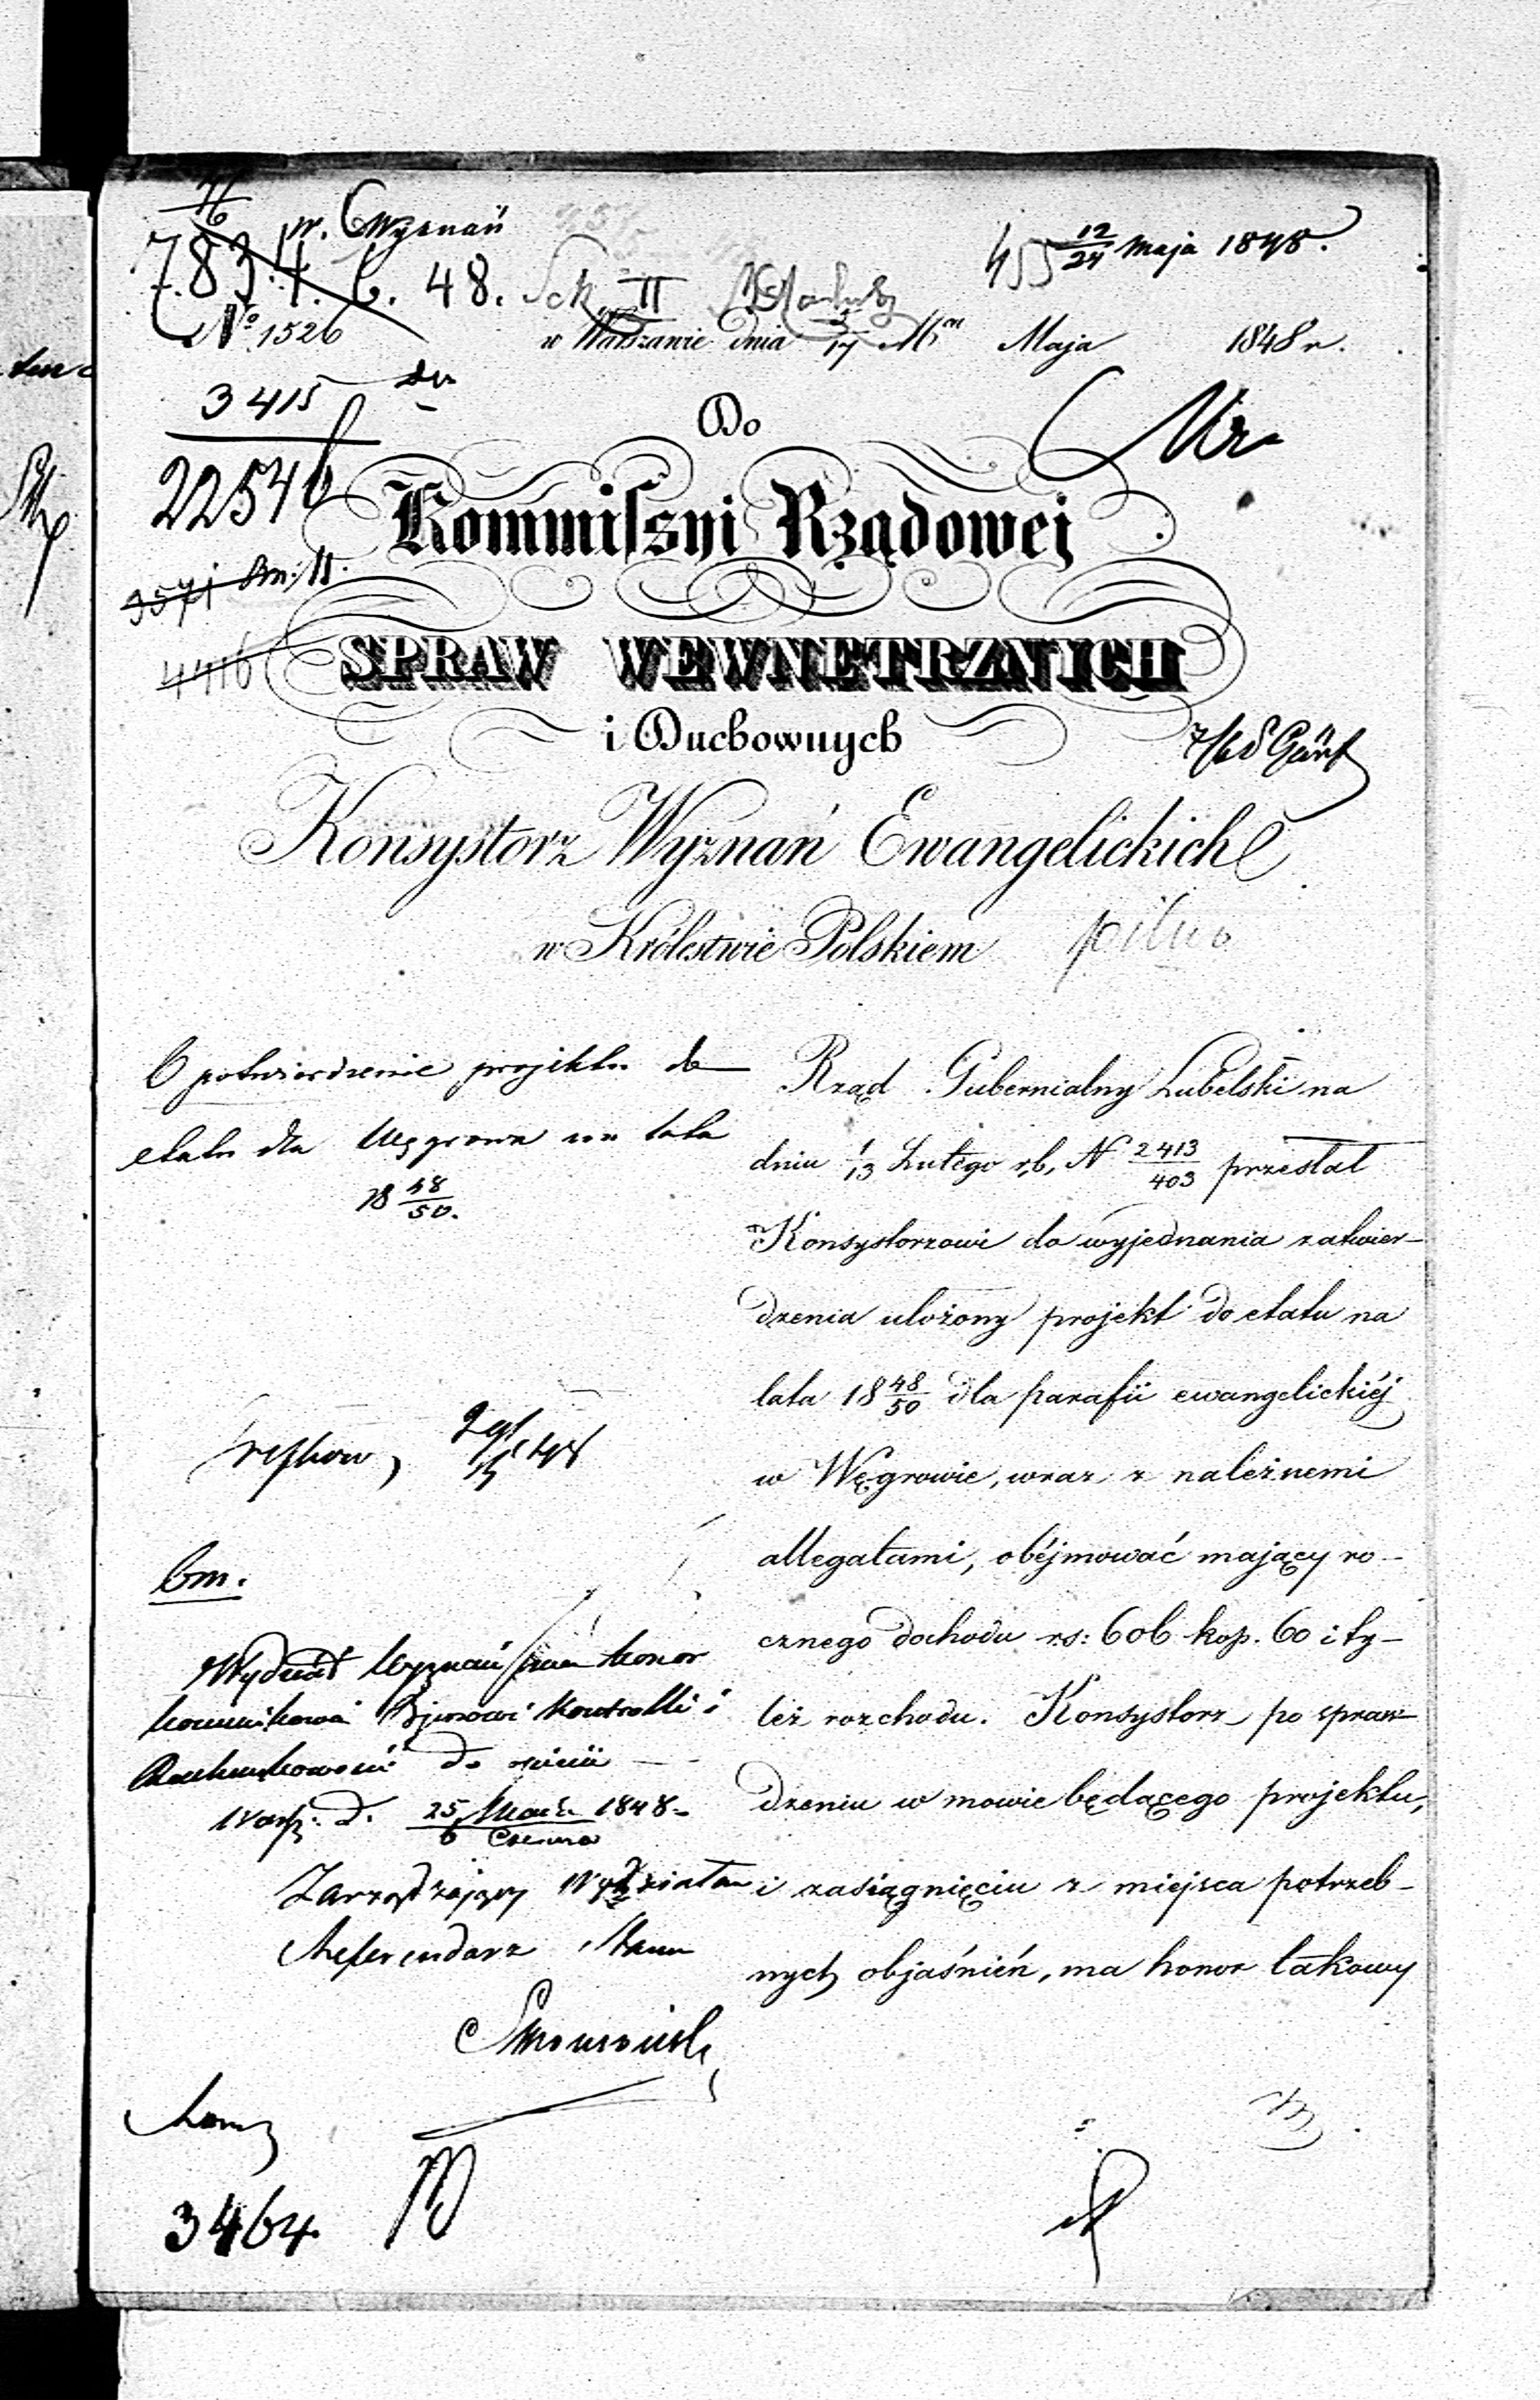 w. Wyznań
12/24 Maja 1848.
7834. 6. 48. Sek II
No 1526
w Warszawie dnia 5/17 Maja 1848 r.
3415
Do
22546
Kommissyi Rządowej
3571 Bm: II.
4416
SPRAW WEWNĘTRZNYCH
i Duchownych
Konsystorz Wyznań Ewangelickich
w Królestwie Polskiem
pilno
O potwierdzenie projektu do
etatu dla Węgrowa na lata
18 48/50.
Rząd Gubernialny Lubelski na
dniu 1/13 Lutego r. b. N 2413/403 przesłał
Konsystorzowi do wyjednania zatwier-
dzenia ułożony projekt do etatu na
lata 18 48/50 dla parafii ewangelickiéj
w Węgrowie, wraz z należnemi
allegatami, obéjmować mający ro-
cznego dochodu rs: 606 kop. 60 i ty-
leż rozchodu. Konsystorz po spraw-
dzeniu w mowie będącego projektu,
i zasiągnięciu z miejsca potrzeb-
nych objaśnień, ma honor takowy
bm.
Wydział Wyznań ma honor
kommunikować Bjurowi Kontrolli i
Rachunkowości do opinii
Warsz. d. 25 Maja/6 Czerwca 1848
Zarządzający Wydziałem
Referendarz Stanu
3464.